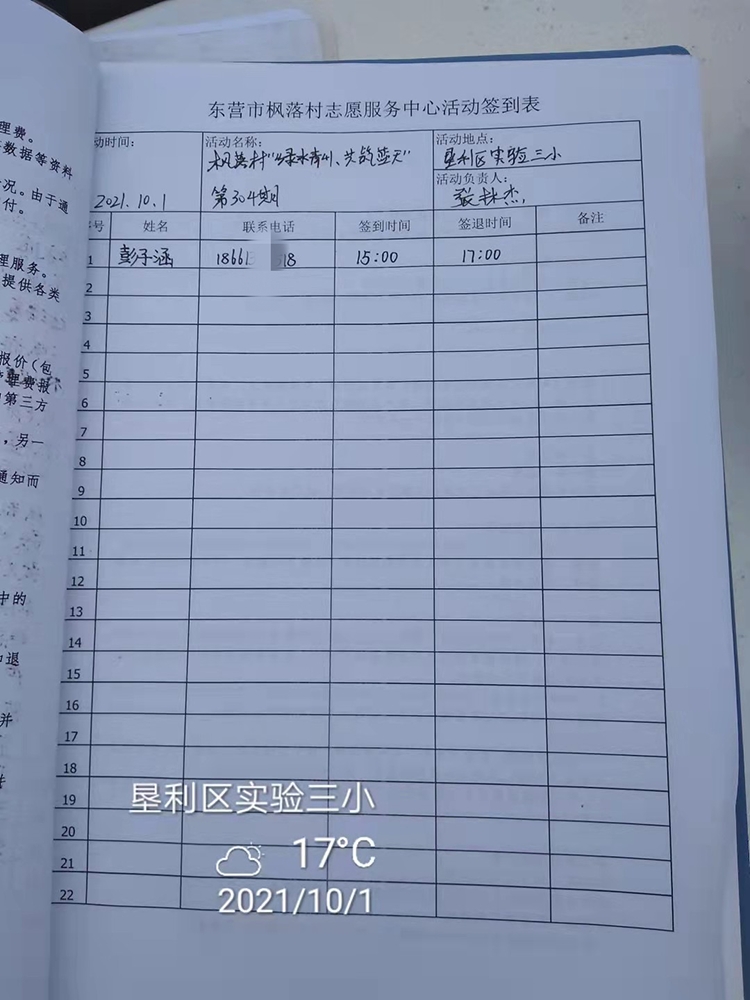 理费。
数据等资料
况。由于通
付。
理服务。
提供各类
报价(包
管理费报
第三方
，另一
通知而
中的
退
并
东营市枫落村志愿服务中心活动签到表
动时间：
2021.10.1
活动名称：
枫落村"绿水青山、共筑蓝天"
第304期
活动地点：
垦利区实验三小
活动负责人：
张林杰
号 姓名 联系电话 签到时间 签退时间 备注
1 彭子涵 1866 18 15:00 17:00
2
3
4
5
6
7
8
9
10
11
12
13
14
15
16
17
18
19
20
21
22
垦利区实验三小
17°C
2021/10/1